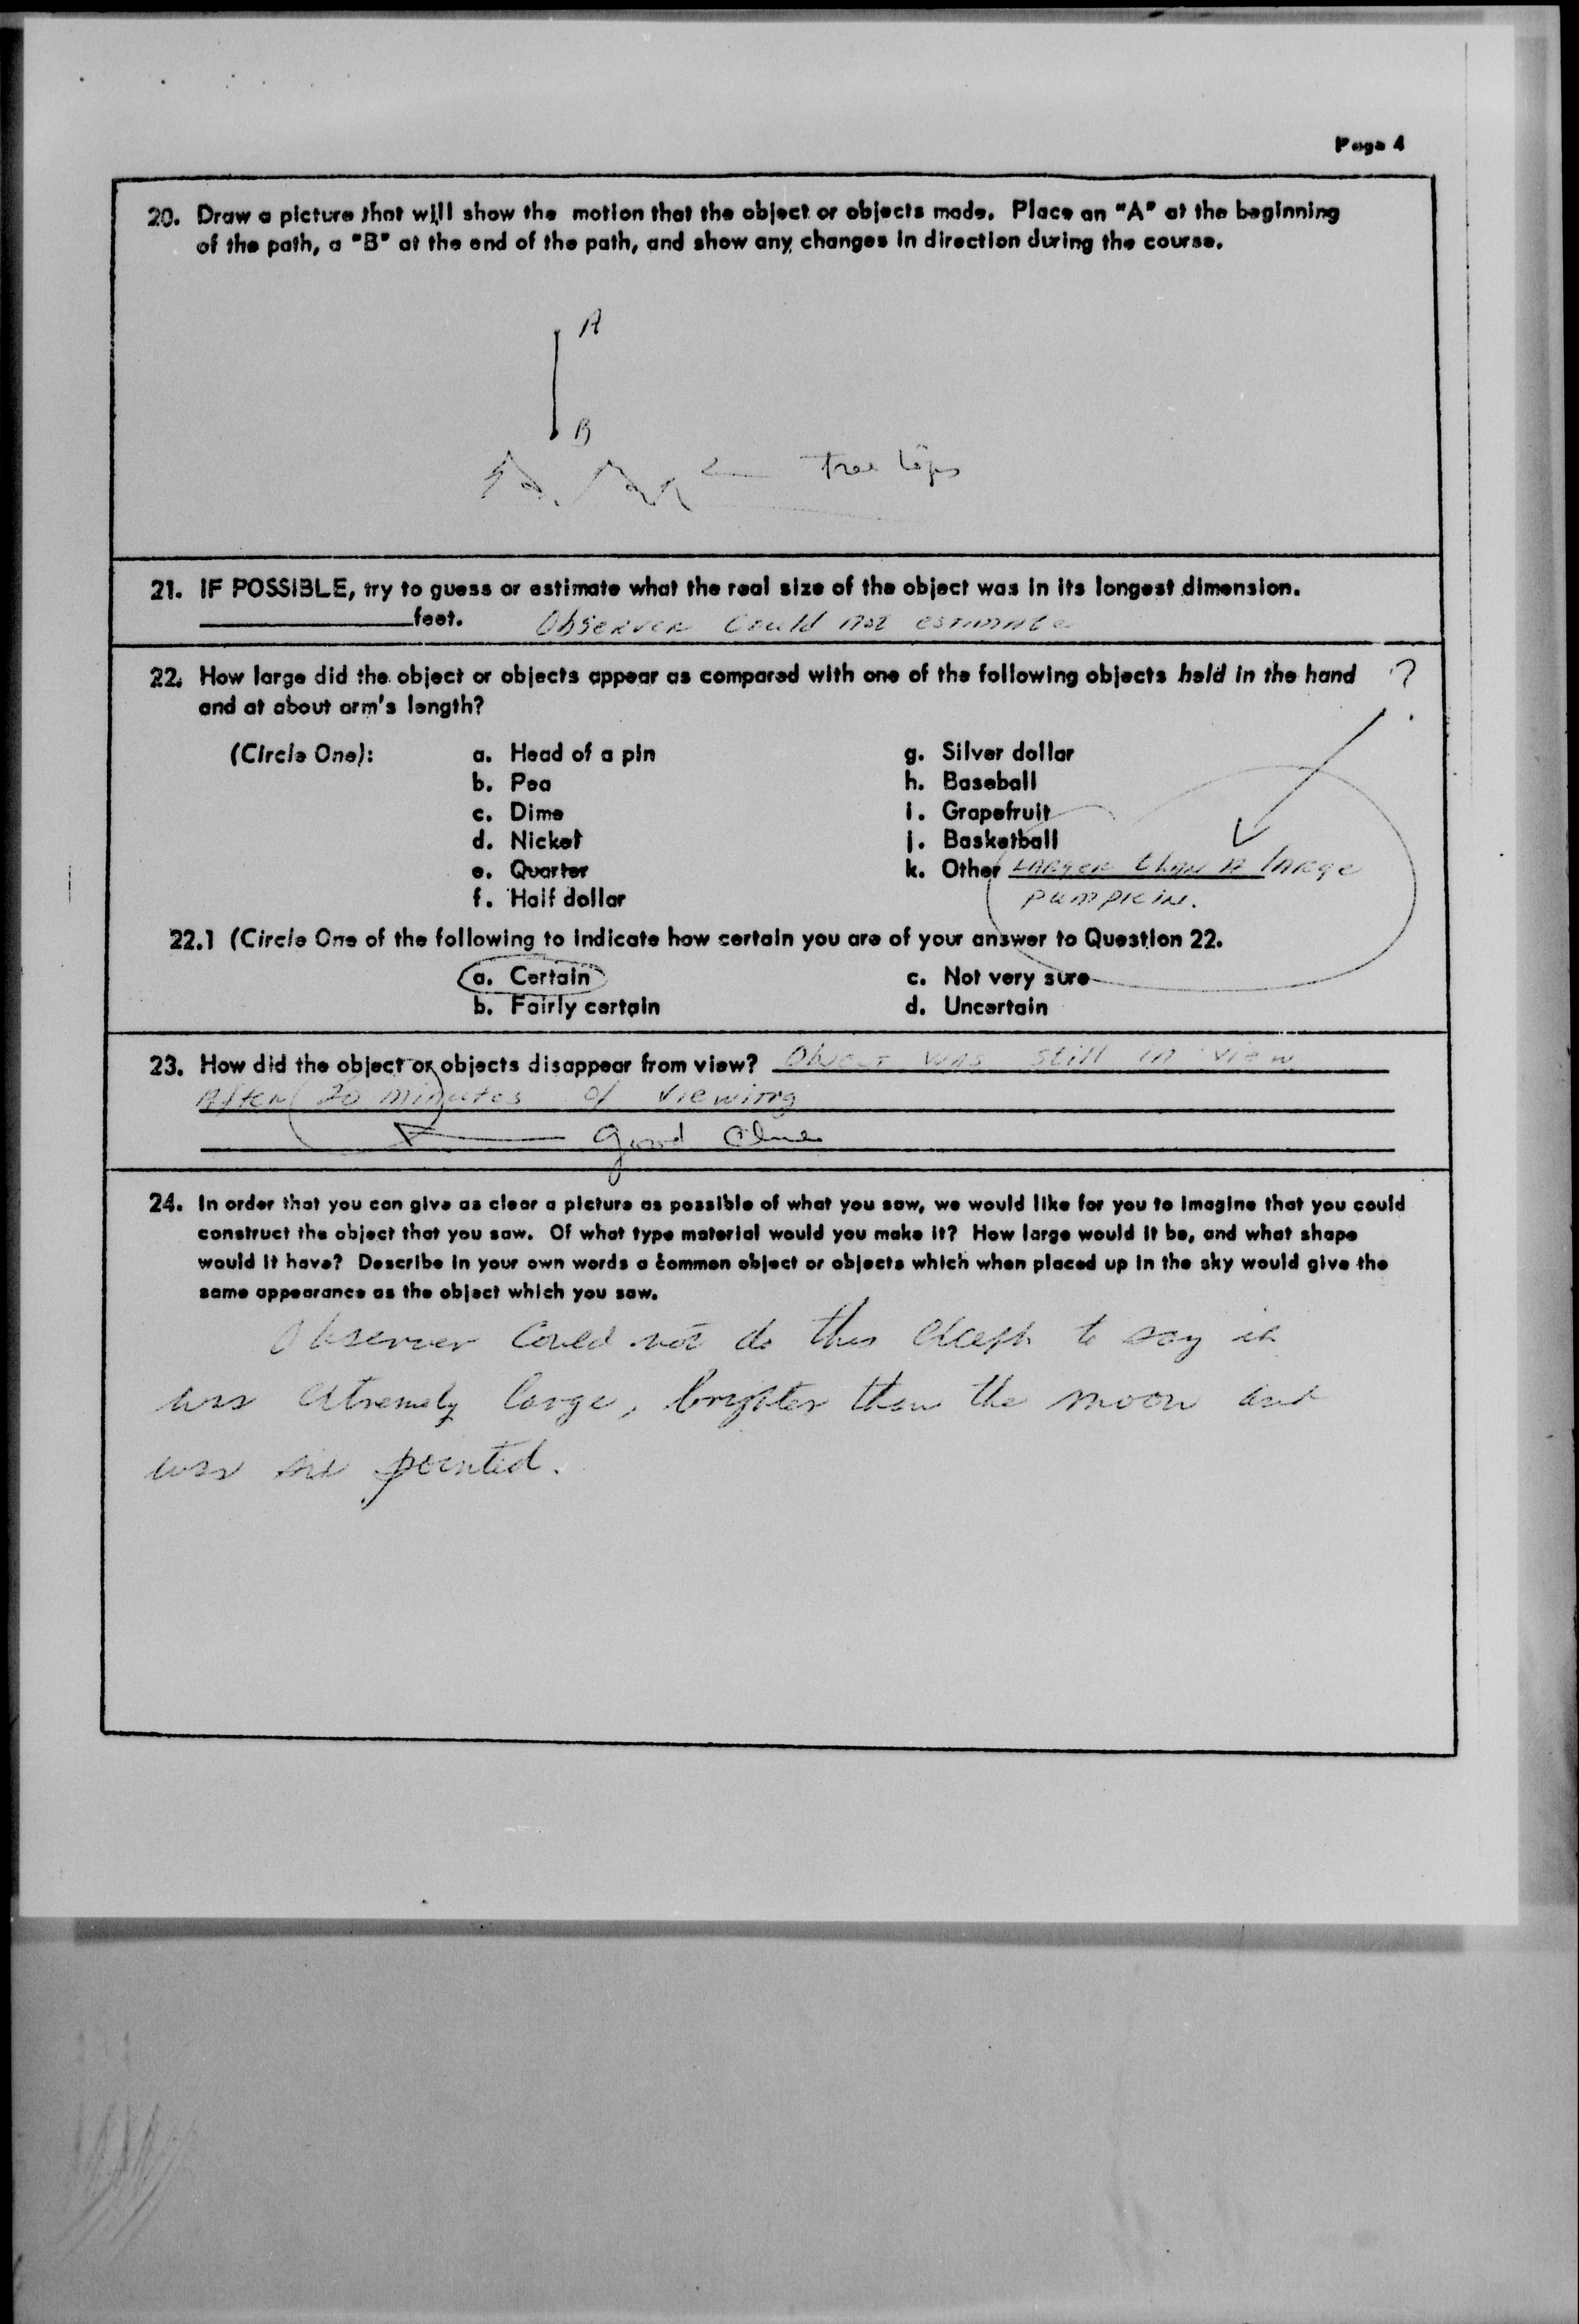 Page 4
20. Draw a picture that will show the motion that the object or objects made. Place an "A" at the beginning
of the path, a "B" at the end of the path, and show any changes in direction during the course.
A
B
tree tops
21. IF POSSIBLE, try to guess or estimate what the real size of the object was in its longest dimension.
feet. Observer could not estimate
22. How large did the object or objects appear as compared with one of the following objects held in the hand ?
and at about arm's length?
(Circle One): a. Head of a pin g. Silver dollar
b. Pea h. Baseball
c. Dime i. Grapefruit
d. Nickel j. Basketball
e. Quarter k. Other Larger than a large
f. Half dollar pumpkin.
22.1 (Circle One of the following to indicate how certain you are of your answer to Question 22.
a. Certain c. Not very sure
b. Fairly certain d. Uncertain
23. How did the object or objects disappear from view? Object was still in view
After 20 minutes of viewing
good clue
24. In order that you can give as clear a picture as possible of what you saw, we would like for you to imagine that you could
construct the object that you saw. Of what type material would you make it? How large would it be, and what shape
would it have? Describe in your own words a common object or objects which when placed up in the sky would give the
same appearance as the object which you saw.
Observer could not do this except to say it
was extremely large, brighter than the moon and
was six pointed.